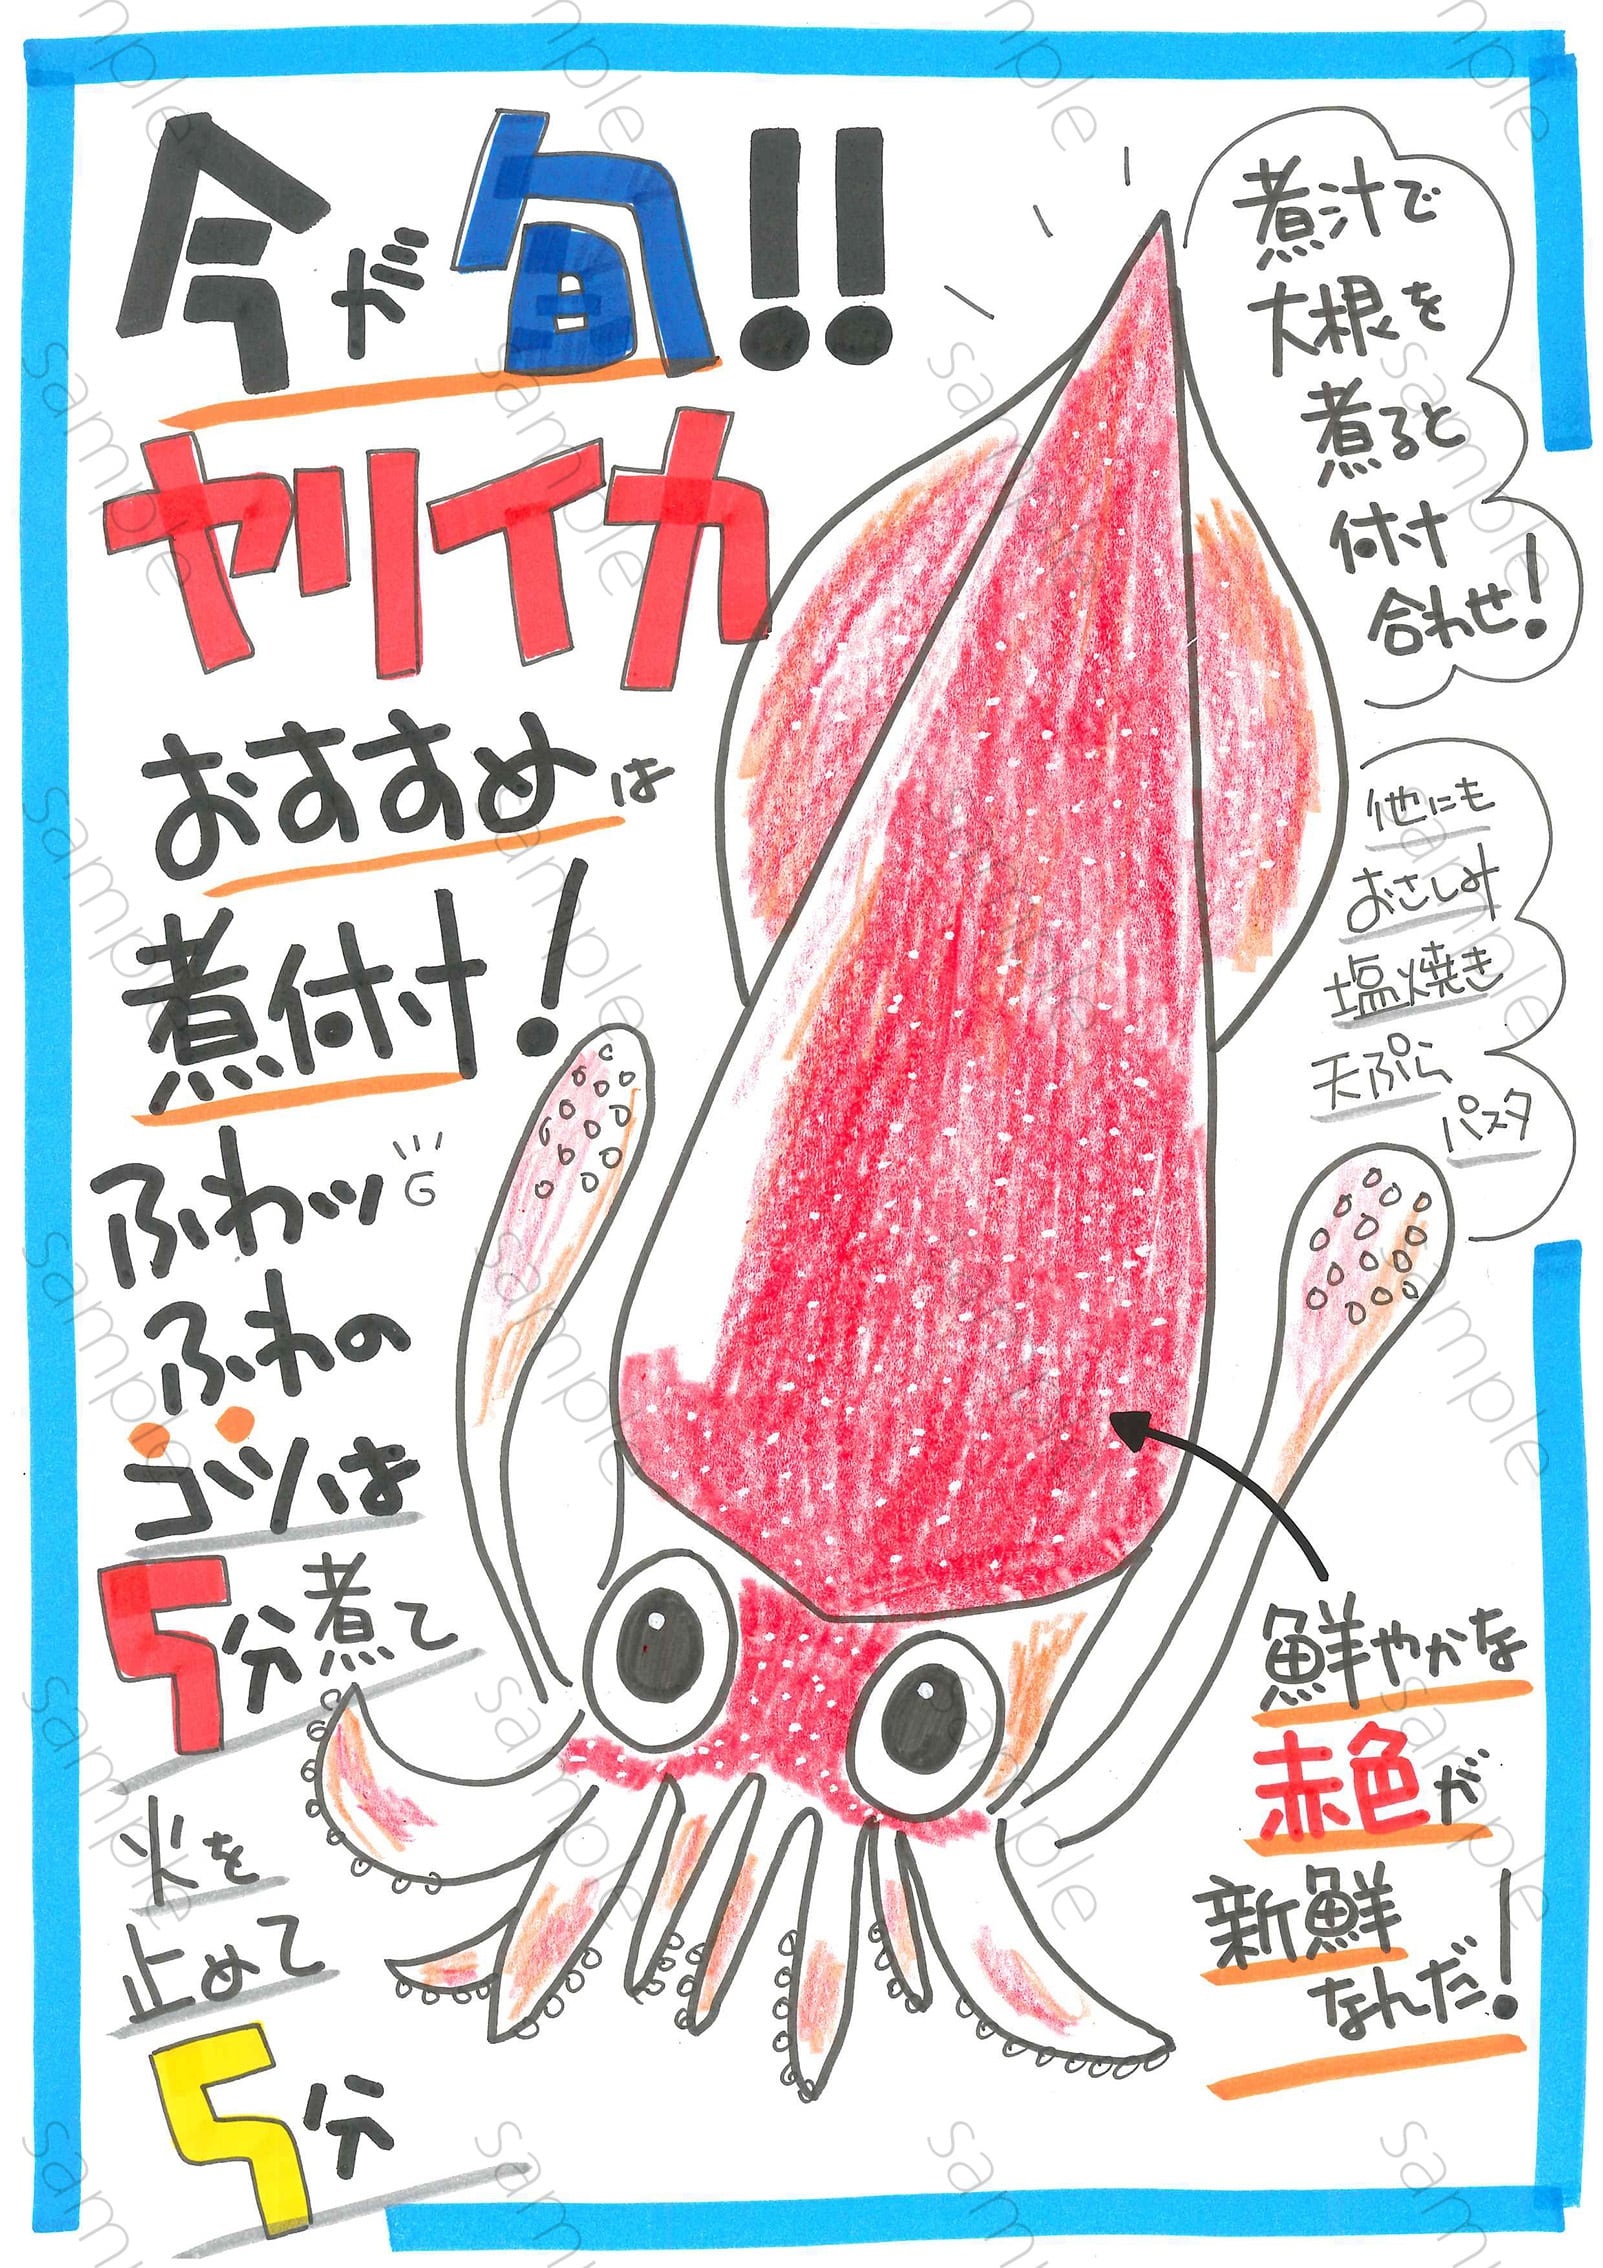 今が旬!!
ヤリイカ
おすすめは
煮付け!
ふわッ
ふわの
コツは
5分煮て
火を
止めて
5分
煮汁で
大根を
煮ると
付け
合わせ!
他にも
おさしみ
塩焼き
天ぷら
パスタ
鮮やかな
赤色が
新鮮
なんだ!
sample